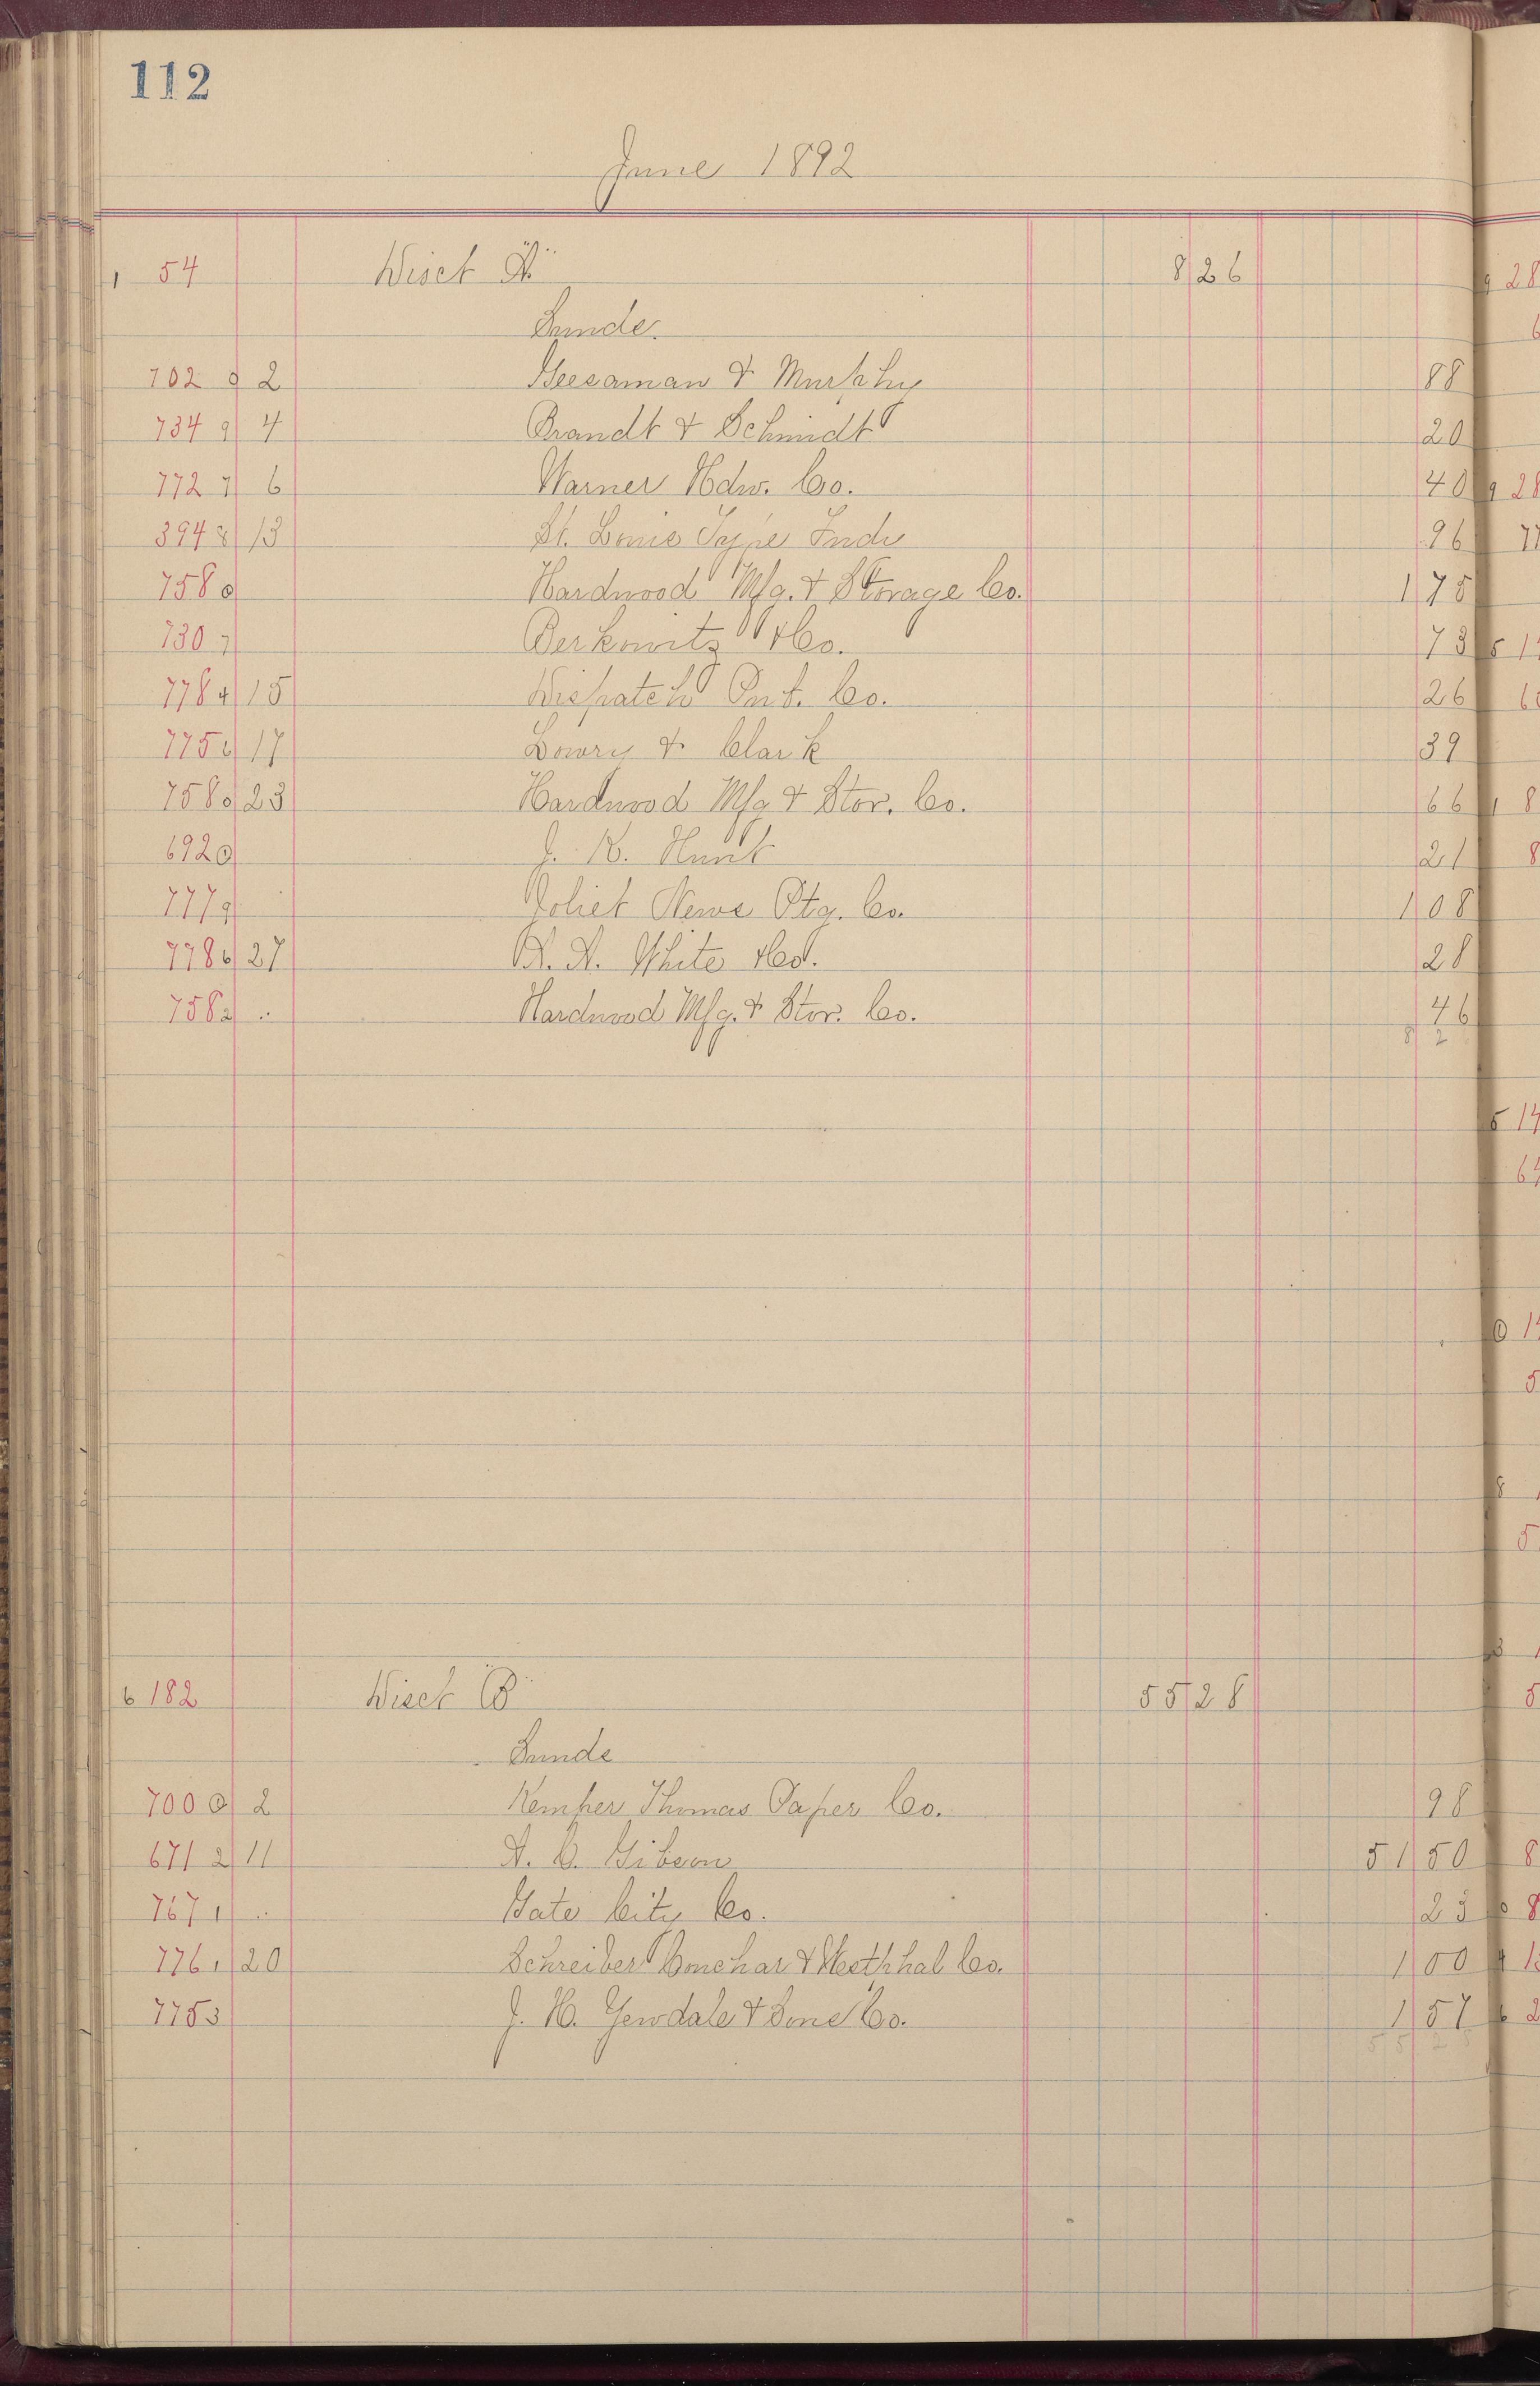 112
June 1892
1 54 Disct "A" 8 26
Sunds.
702 9 2 Geesaman & Murphy 88
734 9 4 Brandt & Schmidt 20
772 7 6 Warner Hdw. Co. 40
394 8 13 St. Louis Type Fndy 96
758 0 Hardwood Mfg. & Storage Co. 1 75
730 7 Berkowitz & Co. 73
778 4 15 Dispatch Pnt. Co. 26
775 6 17 Lowry & Clark 39
758 0 23 Hardwood Mfg & Stor. Co. 66
692 0 J. K. Hunt 21
777 9 Joliet News Ptg. Co. 1 08
778 6 27 A. A. White & Co. 28
758 2 .. Hardwood Mfg. & Stor. Co. 46
8 2
6 182 Disct "B" 55 28
Sunds
700 0 2 Kemper Thomas Paper Co. 98
671 2 11 A. C. Gibson 51 50
767 1 .. Gate City Co. 23
776 1 20 Schreiber Conchar & Westphal Co. 1 00
775 3 J. H. Yewdale & Sons Co. 1 57
55 2